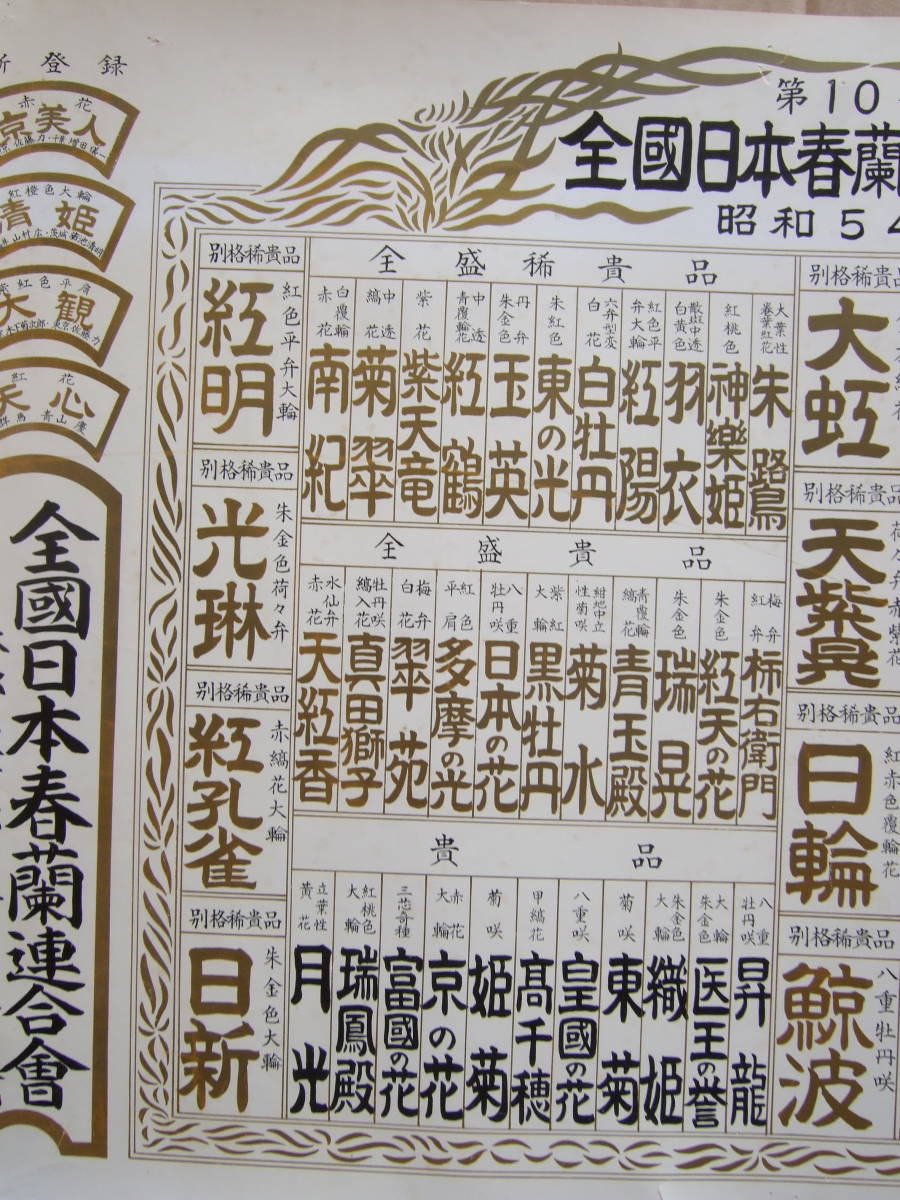 第10
全國日本春蘭
昭和54
登録
赤花
京美人
紅橙色大輪
清姫
紫紅色平肩
大観
紅花
天心
群馬 青山慶
全國日本春蘭連合會
別格稀貴品
大虹
別格稀貴品
天紫晃
荷々弁赤紫花
別格稀貴品
日輪
紅赤色覆輪花
別格稀貴品
鯨波
八重牡丹咲
全盛稀貴品
大葉性巻葉紅花
朱鷺
紅桃色
神樂姫
散斑中透白黄色
羽衣
紅色平弁大輪
紅陽
六弁型変白花
白牡丹
朱紅色
東の光
丹弁朱金色
玉英
中透青覆輪花
紅鶴
紫花
紫天竜
中透縞花
菊翠
白覆輪赤花
南紀
全盛貴品
梅弁紅弁
柿右衛門
朱金色
紅天の花
朱金色
瑞晃
青覆輪縞花
青玉殿
紺地中立性菊咲
菊水
紫紅大輪
黒牡丹
八重牡丹咲
日本の花
紅色平肩
多摩の光
梅弁白花
翠苑
牡丹咲縞入花
真田獅子
水仙弁赤花
天紅香
貴品
八重牡丹咲
昇龍
大輪朱金色
医王の誉
朱金色大輪
織姫
菊咲
東菊
八重咲
皇國の花
甲縞花
高千穂
菊咲
姫菊
赤花大輪
京の花
三芯奇種
富國の花
紅桃色大輪
瑞鳳殿
立葉性黄花
月光
別格稀貴品
紅明
紅色平弁大輪
別格稀貴品
光琳
朱金色荷々弁
別格稀貴品
紅孔雀
赤縞花大輪
別格稀貴品
日新
朱金色大輪